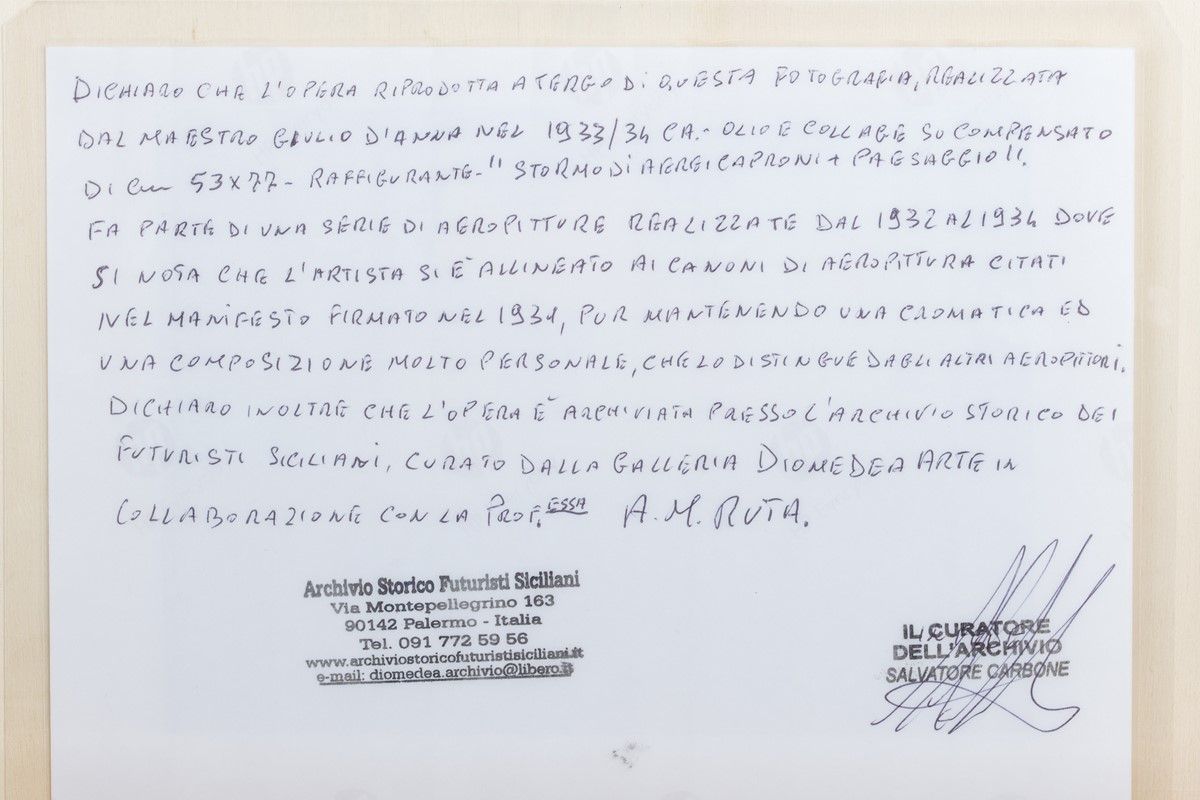 DICHIARO CHE L'OPERA RIPRODOTTA A TERGO DI QUESTA FOTOGRAFIA, REALIZZATA
DAL MAESTRO GIULIO D'ANNA NEL 1933/34 CA.- OLIO E COLLAGE SU COMPENSATO
DI CM 53X77 - RAFFIGURANTE - "STORMO DI AEREI CAPRONI + PAESAGGIO".
FA PARTE DI UNA SERIE DI AEROPITTURE REALIZZATE DAL 1932 AL 1934 DOVE
SI NOTA CHE L'ARTISTA SI È ALLINEATO AI CANONI DI AEROPITTURA CITATI
NEL MANIFESTO FIRMATO NEL 1931, PUR MANTENENDO UNA CROMATICA ED
UNA COMPOSIZIONE MOLTO PERSONALE, CHE LO DISTINGUE DAGLI ALTRI AEROPITTORI.
DICHIARO INOLTRE CHE L'OPERA È ARCHIVIATA PRESSO L'ARCHIVIO STORICO DEI
FUTURISTI SICILIANI, CURATO DALLA GALLERIA DIOMEDEA ARTE IN
COLLABORAZIONE CON LA PROF.ESSA A.M. RUTA.
Archivio Storico Futuristi Siciliani
Via Montepellegrino 163
90142 Palermo - Italia
Tel. 091 772 59 56
www.archiviostoricofuturistisiciliani.it
e-mail: diomedea.archivio@libero.it
IL CURATORE
DELL'ARCHIVIO
SALVATORE CARBONE